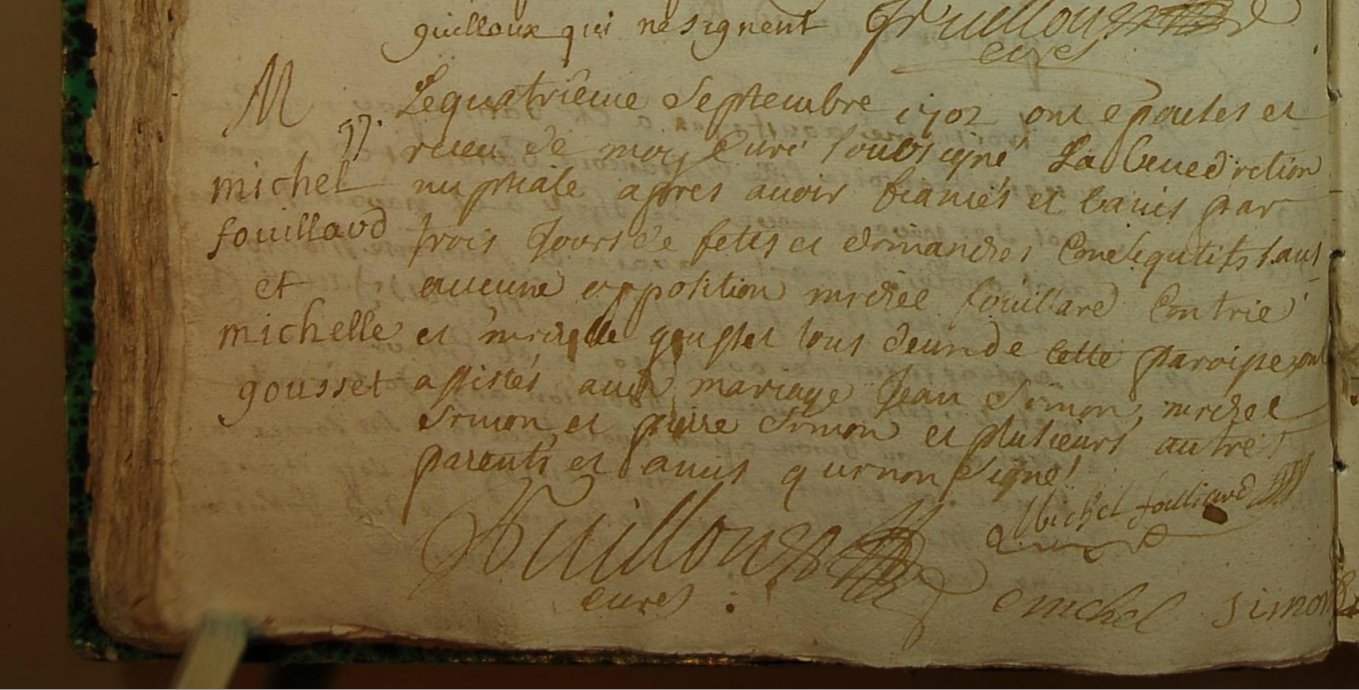 guilloux qui ne signent Fuilloux
curé
M Le quatrieme Septembre 1702 ont epousés et
57. receu de moy Curé soubsigné La benediction
michel nuptiale apres avoir fiancés et banis par
fouillard trois Jours de fetes et dimanches Consequtifs sans
et aucune opposition michel fouillard
michelle et michelle gousset tous deux de cette paroisse
gousset assistés audit mariage Jean Simon, michel
Simon et pierre Simon et plusieurs autres
parents et amis qui non signé
Fuilloux Michel fouillard
curé michel simon